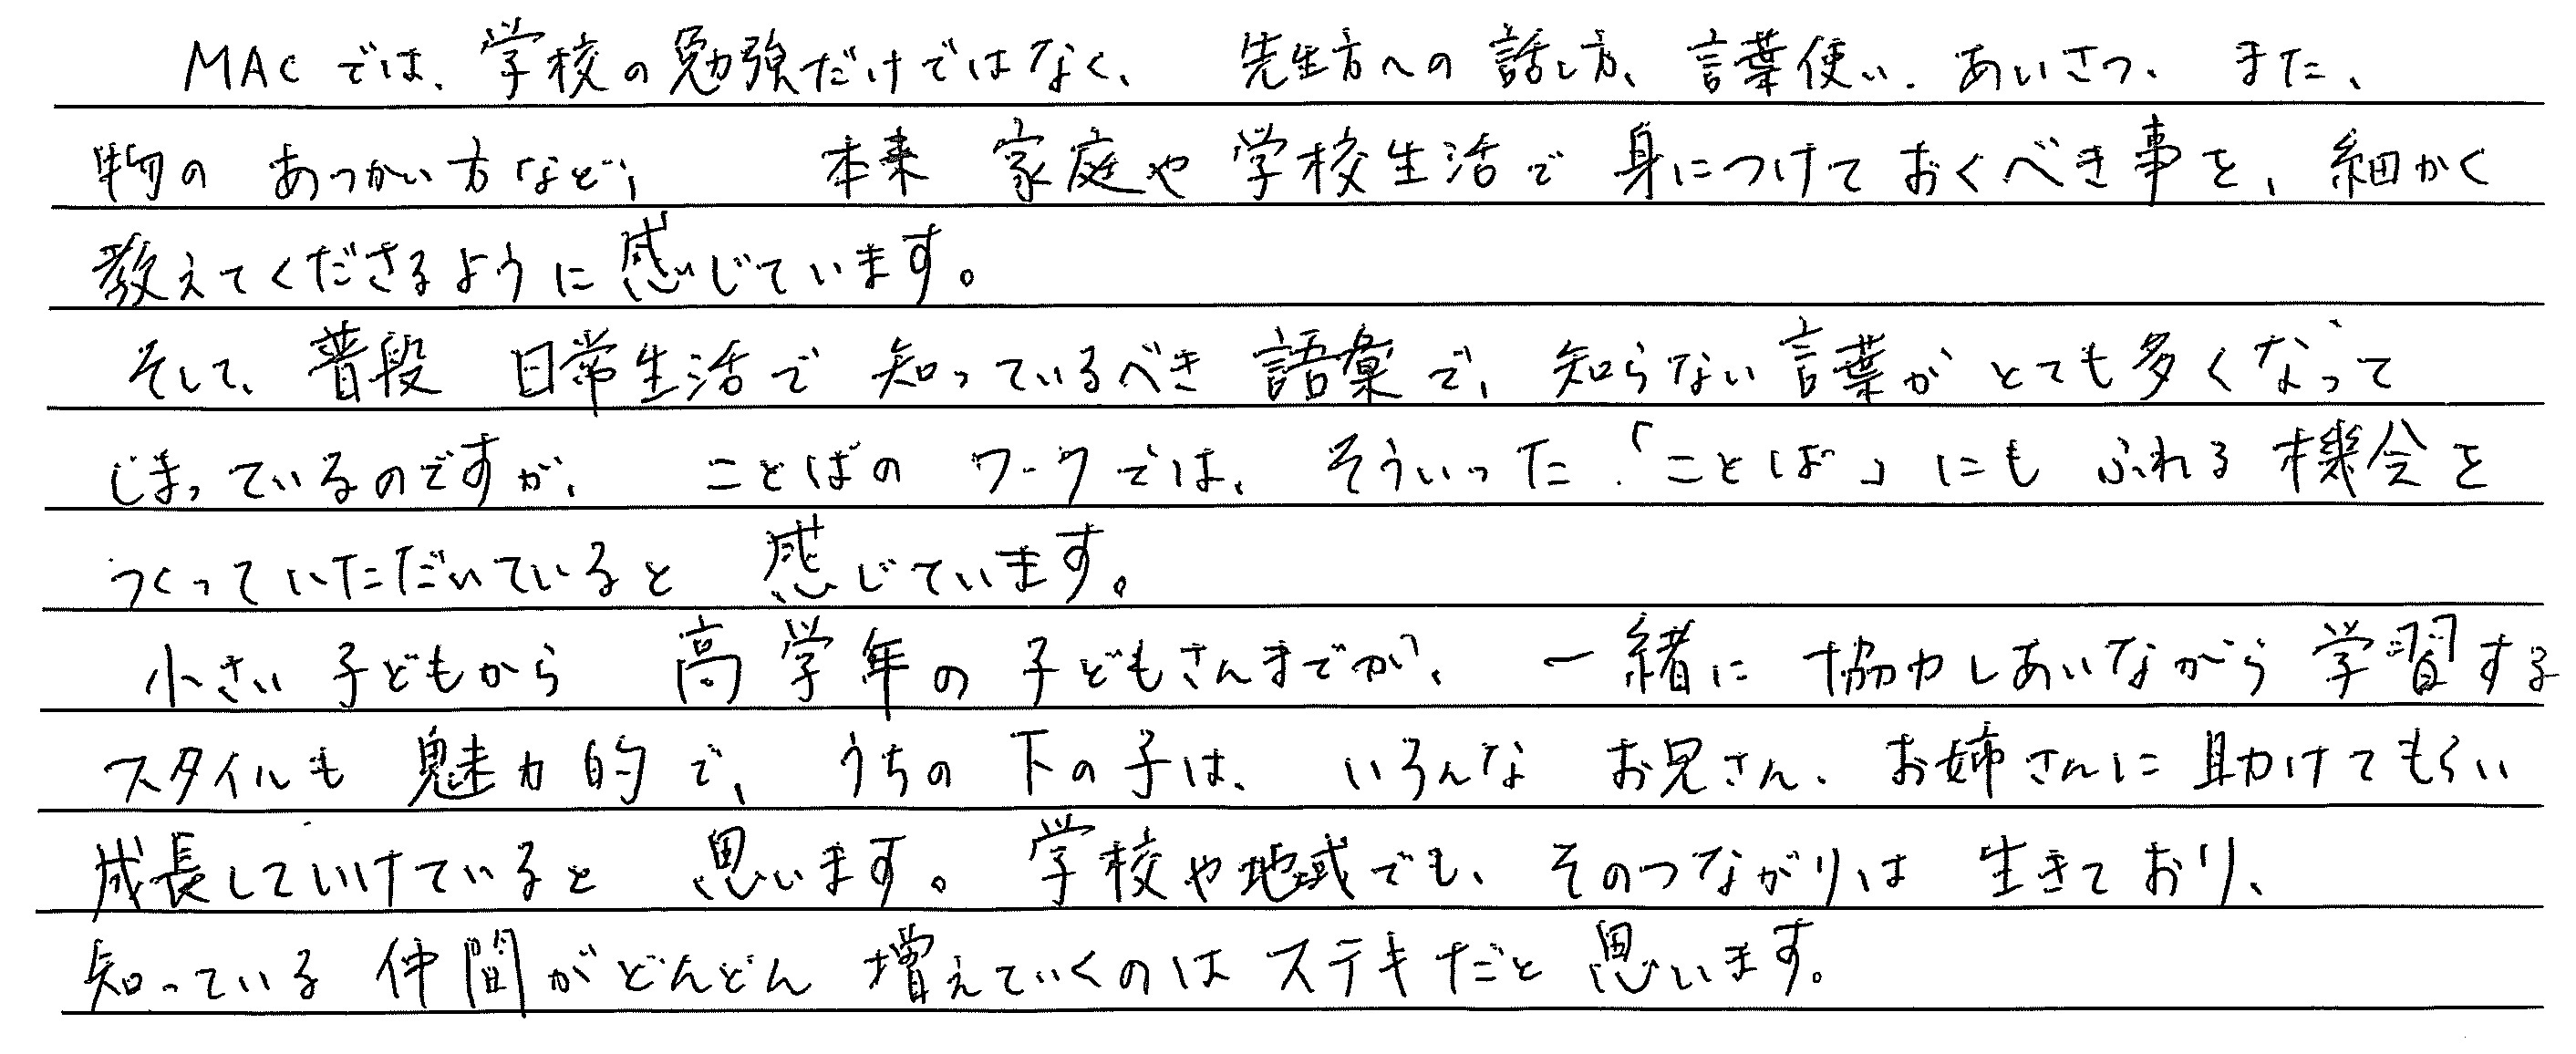 MACでは、学校の勉強だけではなく、先生方への話し方、言葉使い、あいさつ、また、
物のあつかい方など、本来家庭や学校生活で身につけておくべき事を、細かく
教えてくださるように感じています。
そして、普段日常生活で知っているべき語彙で、知らない言葉がとても多くなって
しまっているのですが、ことばのワークでは、そういった「ことば」にもふれる機会を
つくっていただいていると感じています。
小さい子どもから高学年の子どもさんまでが、一緒に協力しあいながら学習する
スタイルも魅力的で、うちの下の子は、いろんなお兄さん、お姉さんに助けてもらい
成長していけていると思います。学校や地域でも、そのつながりは生きており、
知っている仲間がどんどん増えていくのはステキだと思います。